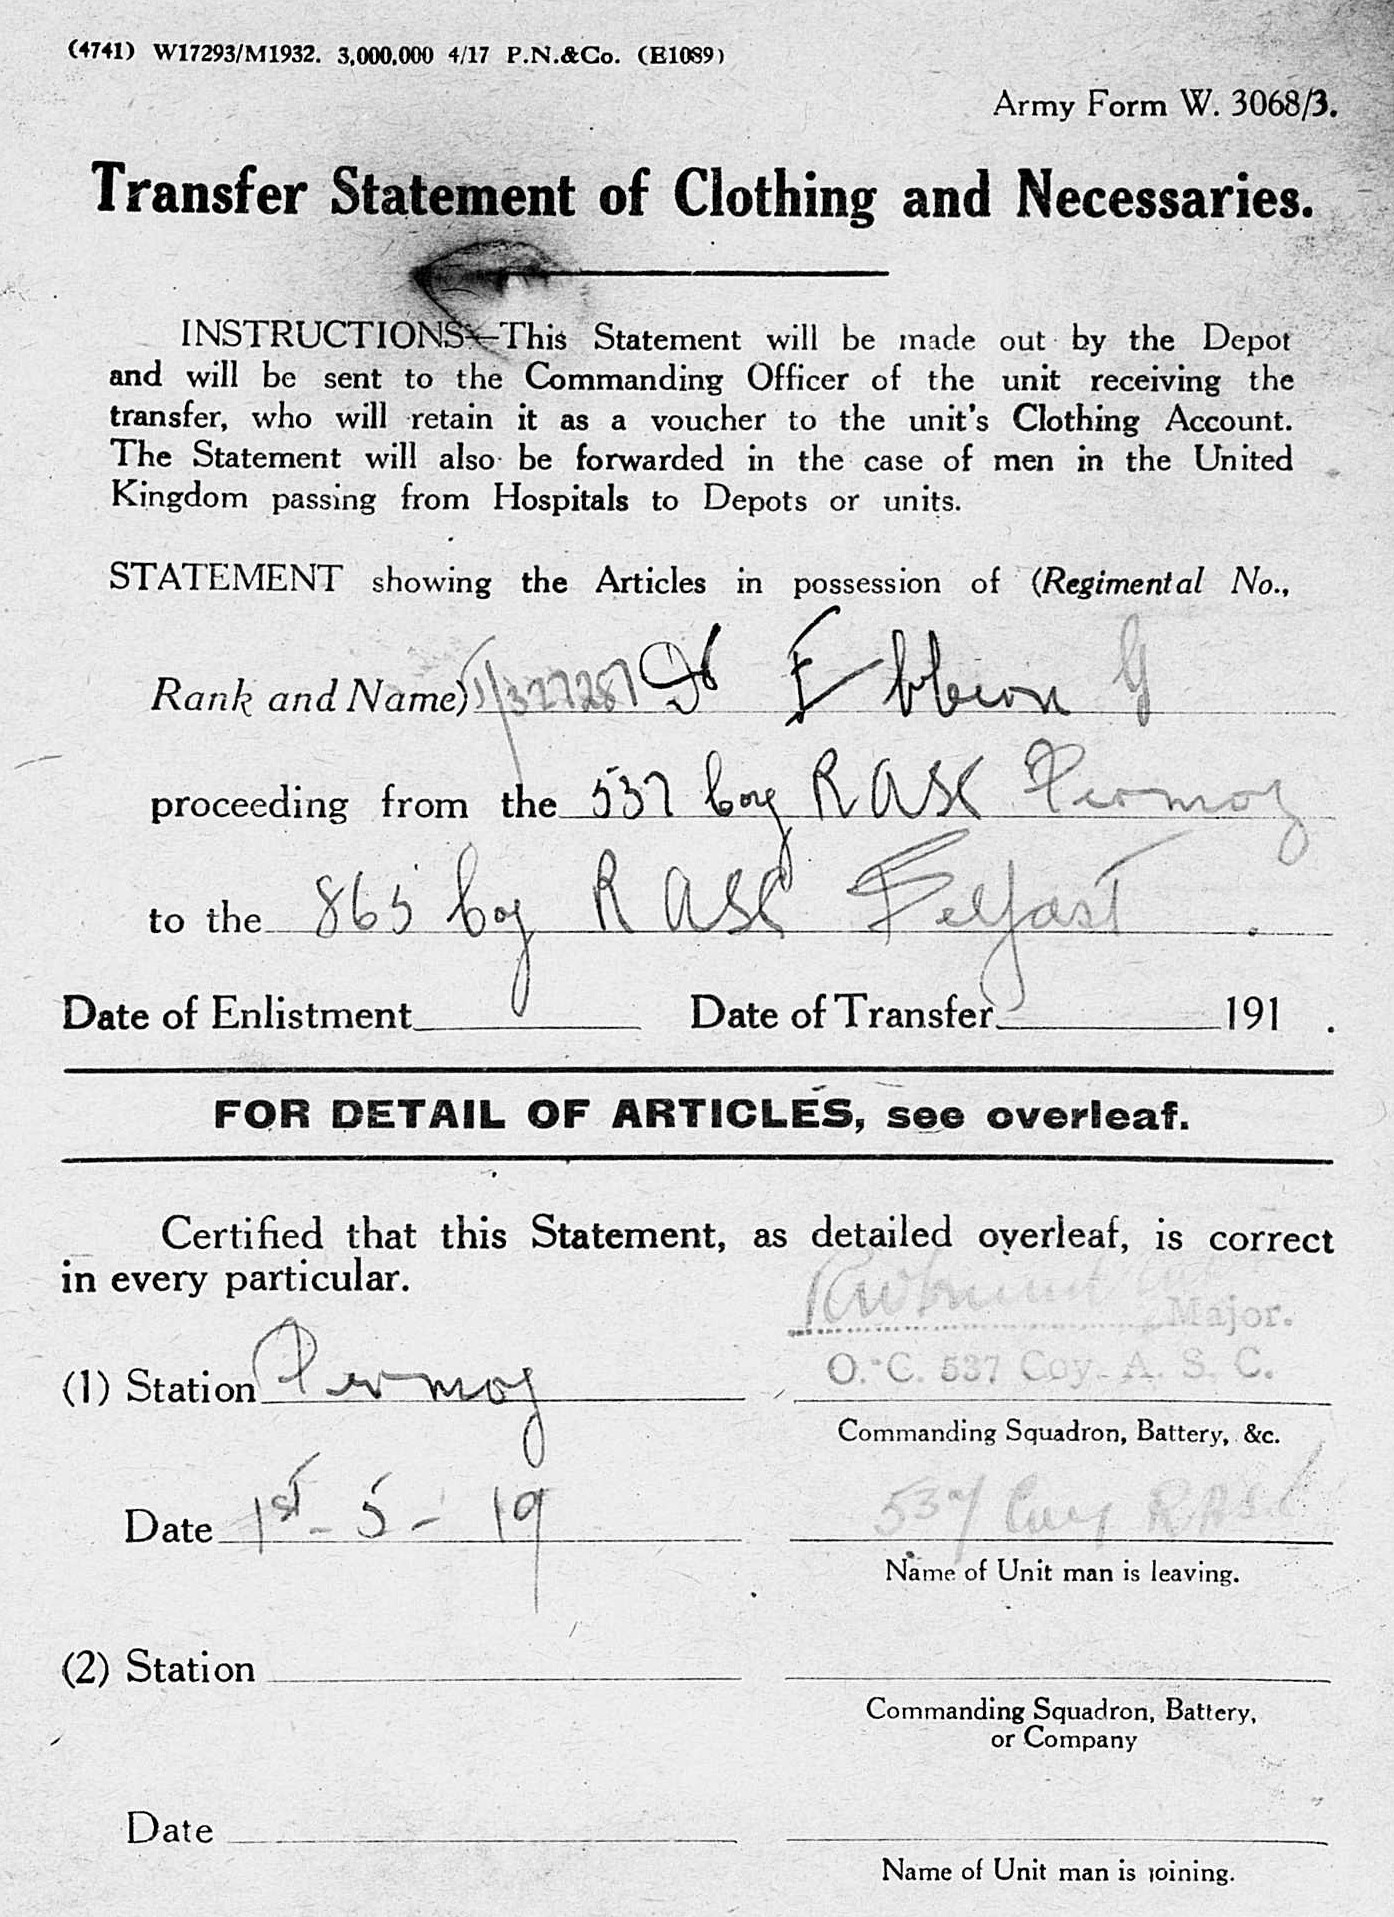 (4741) W17293/M1932. 3,000,000 4/17 P.N.&Co. (E1089)
Army Form W. 3068/3.
Transfer Statement of Clothing and Necessaries.
INSTRUCTIONS.—This Statement will be made out by the Depot
and will be sent to the Commanding Officer of the unit receiving the
transfer, who will retain it as a voucher to the unit's Clothing Account.
The Statement will also be forwarded in the case of men in the United
Kingdom passing from Hospitals to Depots or units.
STATEMENT showing the Articles in possession of (Regimental No.,
Rank and Name) Dr Ebbern G
proceeding from the 537 Coy RASC Fermoy
to the 865 Coy RASC Belfast .
Date of Enlistment Date of Transfer 191 .
FOR DETAIL OF ARTICLES, see overleaf.
Certified that this Statement, as detailed overleaf, is correct
in every particular.
Major.
(1) Station Fermoy O. C. 537 Coy. A. S. C.
Commanding Squadron, Battery, &c.
Date 1st - 5 - 19 537 Coy RASC
Name of Unit man is leaving.
(2) Station
Commanding Squadron, Battery,
or Company
Date
Name of Unit man is joining.